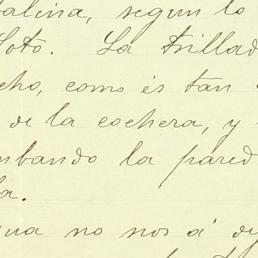 alina, segun lo
Soto. La trillad
cho, como és tan
de la cochera, y
mbando la pared
a.
gua no nos á de